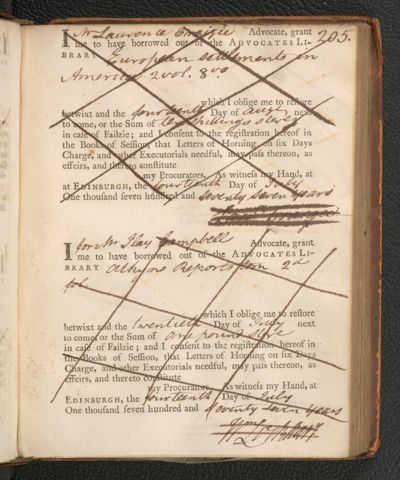 205.
I Mr Laurence Craigie Advocate, grant
me to have borrowed out of the ADVOCATES LI-
BRARY European settlements in
America 2 vol. 8vo
which I oblige me to restore
betwixt and the fourteenth Day of Augt next
to come, or the Sum of ten shillings sterl
in case of Failzie; and I consent to the registration hereof in
the Books of Session, that Letters of Horning on six Days
Charge, and other Executorials needful, may pass thereon, as
effeirs, and thereto constitute
my Procurators. As witness my Hand, at
at EDINBURGH, the fourteenth Day of July
One thousand seven hundred and seventy seven years
I for Mr Ilay Campbell Advocate, grant
me to have borrowed out of the ADVOCATES LI-
BRARY Atkyns Reports tom 2d
fol
which I oblige me to restore
betwixt and the twentieth Day of July next
to come, or the Sum of one pound Sterl
in case of Failzie; and I consent to the registration hereof in
the Books of Session, that Letters of Horning on six Days
Charge, and other Executorials needful, may pass thereon, as
effeirs, and thereto constitute
my Procurators. As witness my Hand, at
EDINBURGH, the fourteenth Day of July
One thousand seven hundred and seventy seven years